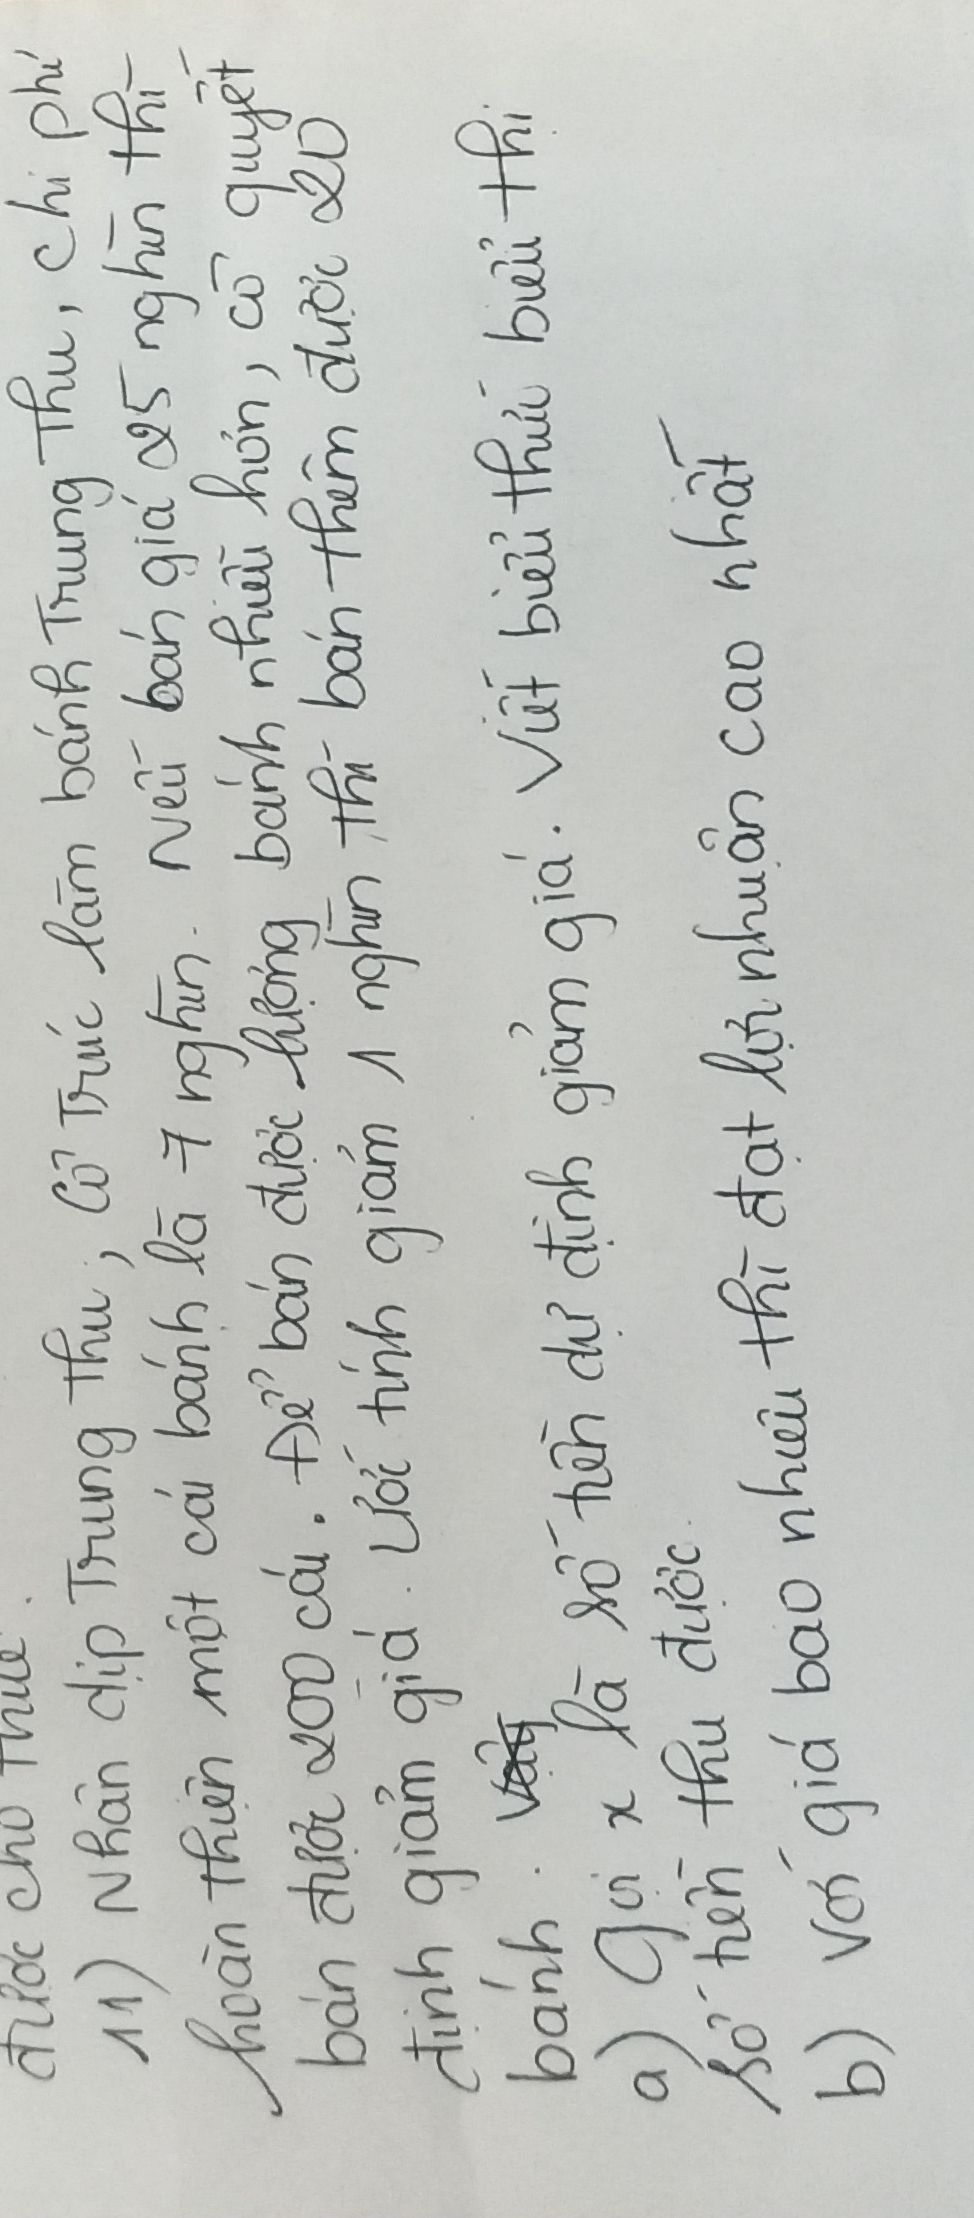 được cho thuê.
11) Nhân dịp Trung thu, Cô Trúc làm bánh Trung Thu, chi phí
hoàn thiện một cái bánh là 7 nghìn. Nếu bán giá 25 nghìn thì
bán được 200 cái. Để bán được lượng bánh nhiều hơn, cô quyết
định giảm giá. Ước tính giảm 1 nghìn thì bán thêm được 20
bánh.
a) Gọi x là số tiền dự định giảm giá. Viết biểu thức biểu thị
số tiền thu được.
b) Với giá bao nhiêu thì đạt lợi nhuận cao nhất